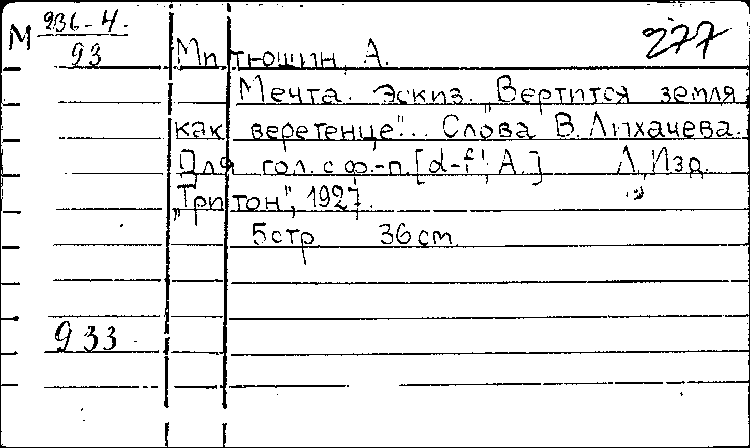 М 236-4.
93
277
Митюшин, А.
Мечта. Эскиз. „Вертится земля
как веретенце"... Слова В. Лихачева.
Для гол. с ф.-п. [d-f'; А.] Л., Изд.
„Тритон", 1927.
5 стр 36 cm
933